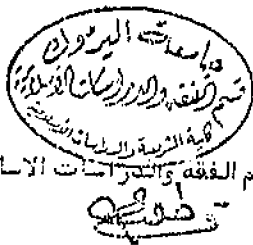 جامعة اليرموك
قسم الفقه والدراسات الاسلامية
كلية الشريعة والدراسات الاسلامية
م الفقه والدراسات الاسا